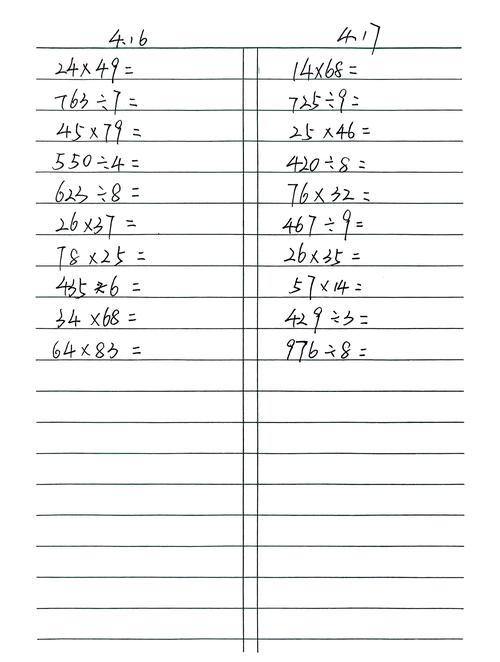 4.16
24×49=
763÷7=
45×79=
550÷4=
623÷8=
26×37=
78×25=
435×6=
34×68=
64×83=
4.17
14×68=
725÷9=
25×46=
420÷8=
76×32=
467÷9=
26×35=
57×14=
429÷3=
976÷8=